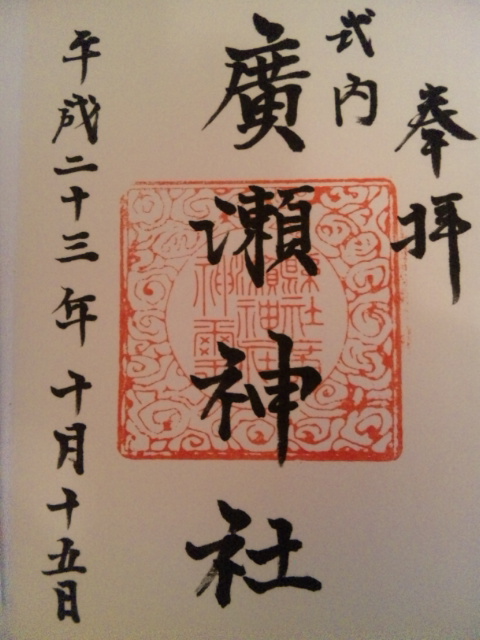 奉拝
式内
廣瀬神社
平成二十三年十月十五日